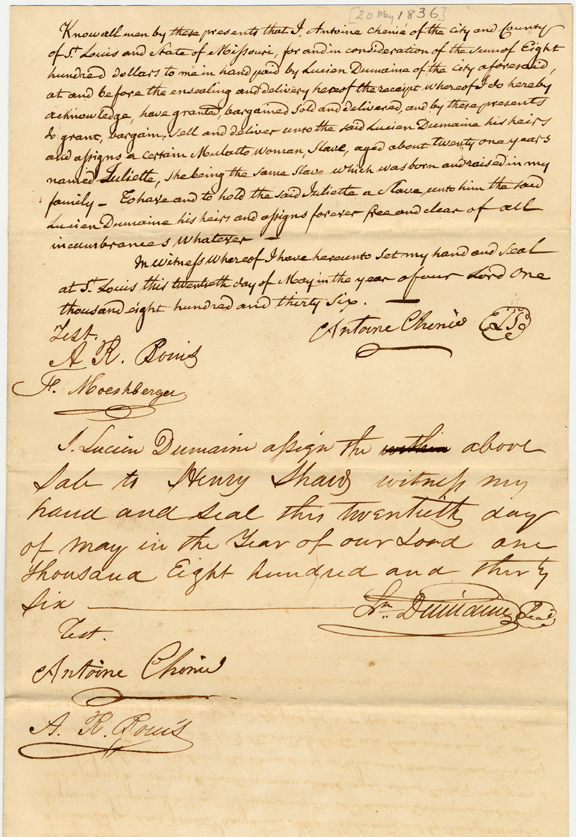 [20 May 1836]
Know all men by these presents that I, Antoine Chenie of the city and County
of St. Louis and State of Missouri, for and in consideration of the sum of Eight
hundred dollars to me in hand paid by Lucien Dumaine of the city aforesaid,
at and before the ensealing and delivery hereof the receipt whereof I do hereby
acknowledge, have granted, bargained sold and delivered, and by these presents
do grant, bargain, sell and deliver unto the said Lucien Dumaine his heirs
and assigns a certain Mulatto Woman, Slave, aged about twenty one years
named Juliette, she being the same Slave which was born and raised in my
family — To have and to hold the said Juliette a Slave unto him the said
Lucien Dumaine his heirs and assigns forever free and clear of all
incumbrances whatever —
In Witness Whereof I have hereunto set my hand and Seal
at St. Louis this twentieth day of May in the year of our Lord One
thousand eight hundred and thirty six. —
Test.
Antoine Chenie
A. R. Bouis
F. Moeshberger
I. Lucien Dumaine assign the within above
Sale to Henry Shaw witness my
hand and seal this twentieth day
of May in the Year of our Lord one
thousand Eight hundred and thirty
six —
Ln. Dumaine Seal
Test.
Antoine Chenie
A. R. Bouis